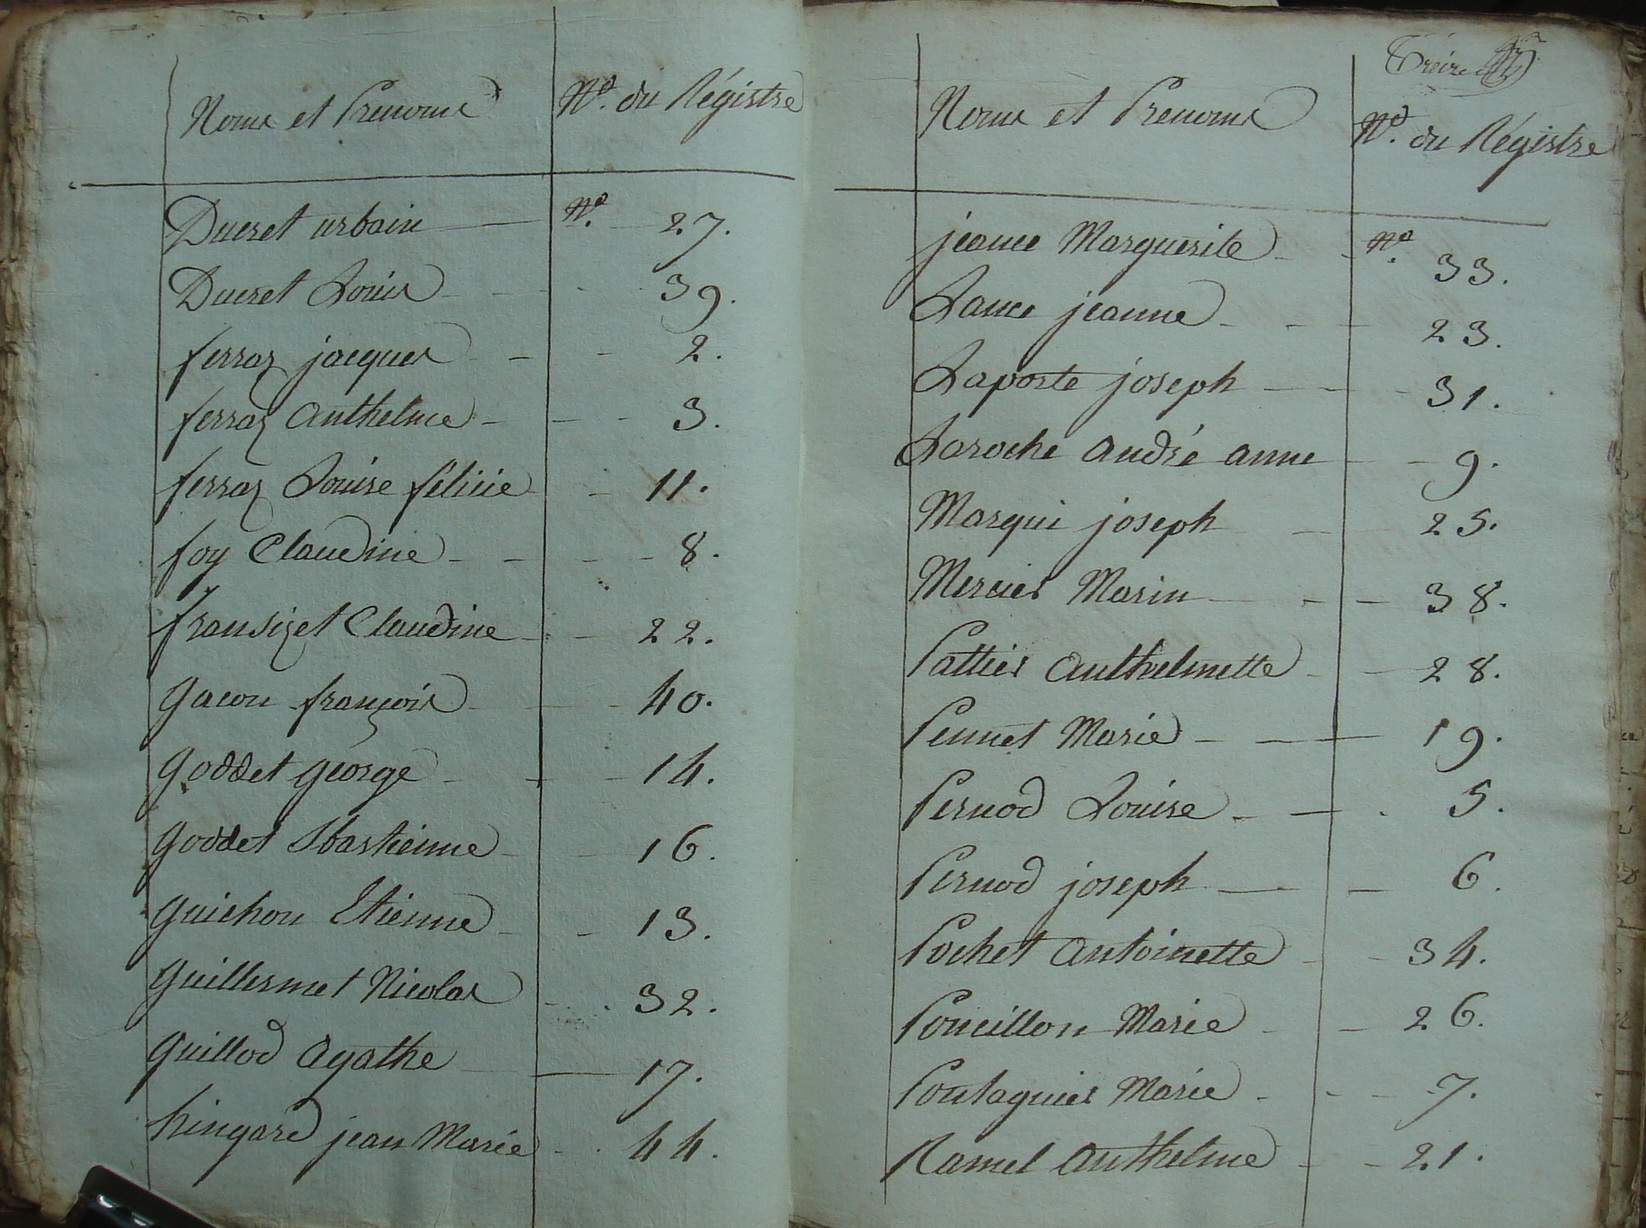 Noms et Prenoms
N.º du Régistre
Ducret urbain N.º 27.
Ducret Louis 39.
ferraz jacques 2.
ferraz Anthelme 3.
ferraz Louise félicie 11.
foy Claudine 8.
fransizet Claudine 22.
gacon françois 40.
goddet george 14.
goddet Sbastienne 16.
guichon Etienne 13.
guillermet Nicolas 32.
guillod Agathe 17.
hingard jean Marie 44.
Treize
Noms et Prenoms
N.º du Régistre
jeance Marguerite N.º 33.
Lance jeanne 23.
Laporte joseph 31.
Laroche André anne 9.
Marqui joseph 25.
Mercier Marin 38.
Pattier Anthelmette 28.
Pennet Marie 19.
Pernod Louise 5.
Pernod joseph 6.
Pochet Antoinette 34.
Poncillon Marie 26.
Pontagnier Marie 7.
Ramel Anthelme 21.